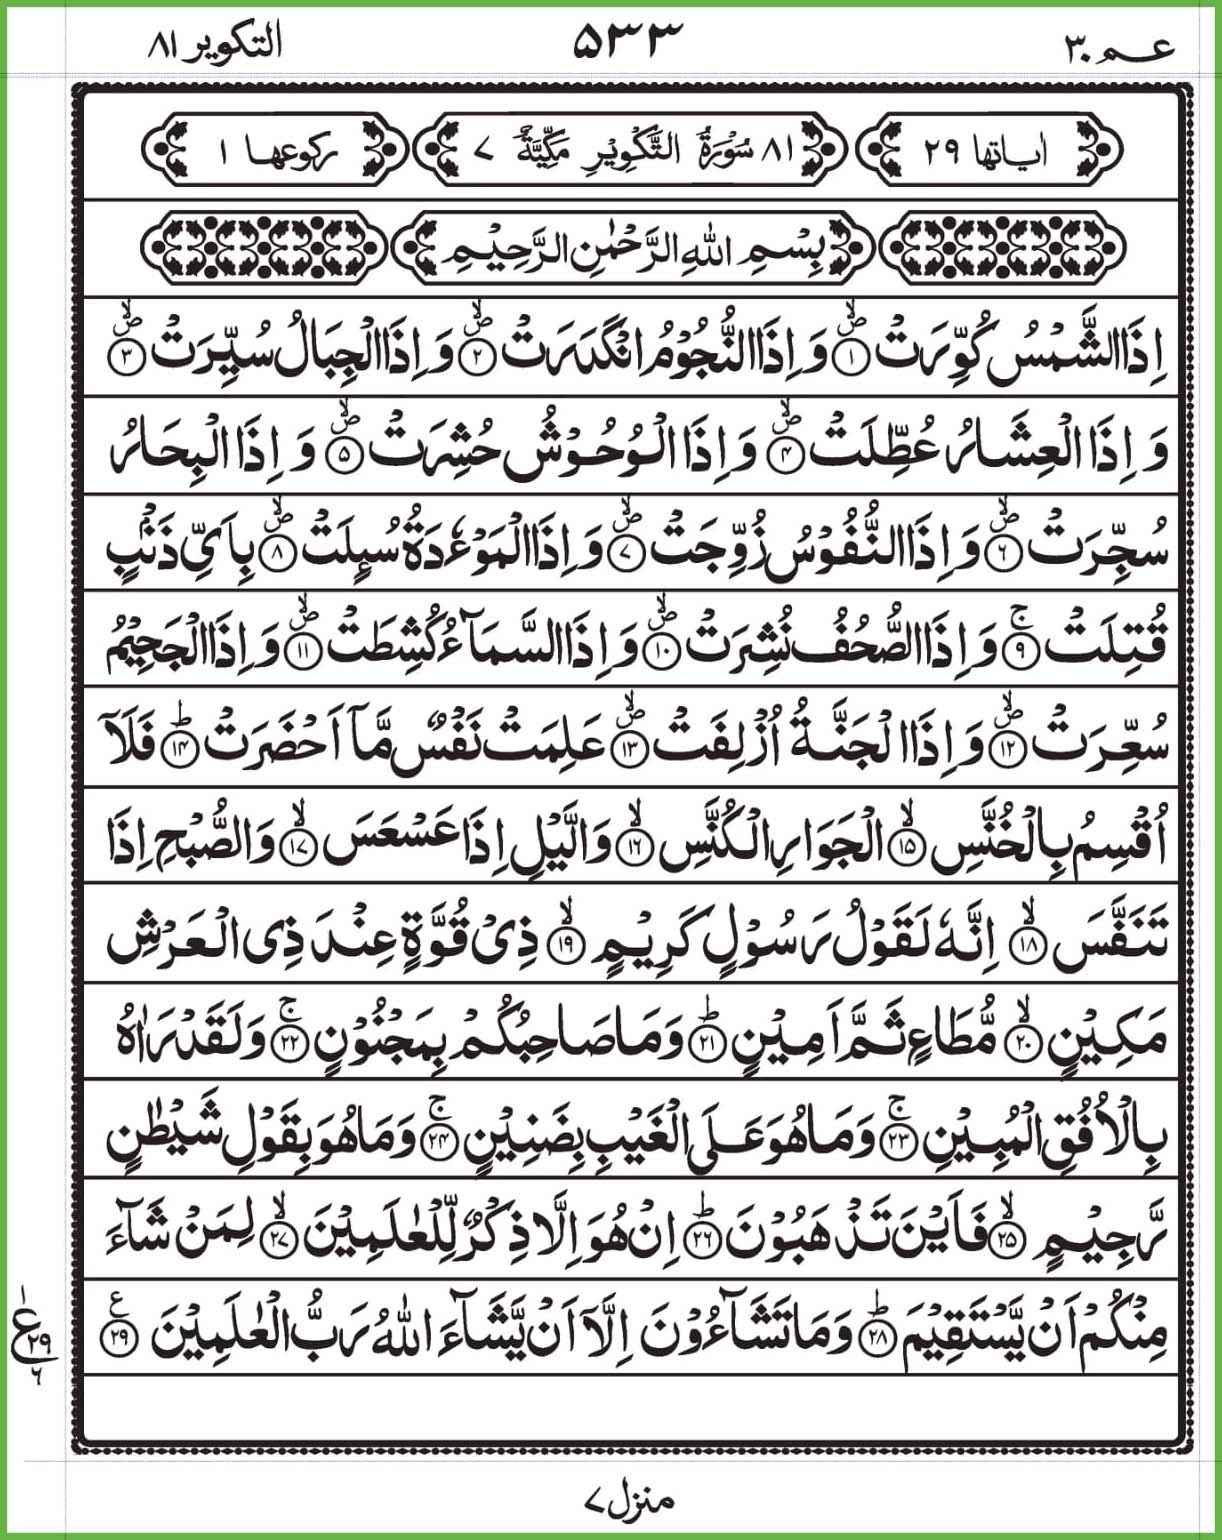 عم ۳۰
۵۳۳
التكوير ۸۱
اٰیاتها ۲۹
۸۱ سُوْرَةُ التَّكْوِيْرِ مَكِّيَّةٌ ۷
ركوعها ۱
بِسْمِ اللّٰهِ الرَّحْمٰنِ الرَّحِيْمِ
اِذَا الشَّمْسُ كُوِّرَتْ ۱ وَاِذَا النُّجُوْمُ انْكَدَرَتْ ۲ وَاِذَا الْجِبَالُ سُيِّرَتْ ۳
وَاِذَا الْعِشَارُ عُطِّلَتْ ۴ وَاِذَا الْوُحُوْشُ حُشِرَتْ ۵ وَاِذَا الْبِحَارُ
سُجِّرَتْ ۶ وَاِذَا النُّفُوْسُ زُوِّجَتْ ۷ وَاِذَا الْمَوْءٗدَةُ سُىِٕلَتْ ۸ بِاَيِّ ذَنْۢبٍ
قُتِلَتْ ۹ وَاِذَا الصُّحُفُ نُشِرَتْ ۱۰ وَاِذَا السَّمَآءُ كُشِطَتْ ۱۱ وَاِذَا الْجَحِيْمُ
سُعِّرَتْ ۱۲ وَاِذَا الْجَنَّةُ اُزْلِفَتْ ۱۳ عَلِمَتْ نَفْسٌ مَّاۤ اَحْضَرَتْ ۱۴ فَلَاۤ
اُقْسِمُ بِالْخُنَّسِ ۱۵ الْجَوَارِ الْكُنَّسِ ۱۶ وَالَّيْلِ اِذَا عَسْعَسَ ۱۷ وَالصُّبْحِ اِذَا
تَنَفَّسَ ۱۸ اِنَّهٗ لَقَوْلُ رَسُوْلٍ كَرِيْمٍ ۱۹ ذِيْ قُوَّةٍ عِنْدَ ذِى الْعَرْشِ
مَكِيْنٍ ۲۰ مُّطَاعٍ ثَمَّ اَمِيْنٍ ۲۱ وَمَا صَاحِبُكُمْ بِمَجْنُوْنٍ ۲۲ وَلَقَدْ رَاٰهُ
بِالْاُفُقِ الْمُبِيْنِ ۲۳ وَمَا هُوَ عَلَى الْغَيْبِ بِضَنِيْنٍ ۲۴ وَمَا هُوَ بِقَوْلِ شَيْطٰنٍ
رَّجِيْمٍ ۲۵ فَاَيْنَ تَذْهَبُوْنَ ۲۶ اِنْ هُوَ اِلَّا ذِكْرٌ لِّلْعٰلَمِيْنَ ۲۷ لِمَنْ شَآءَ
مِنْكُمْ اَنْ يَّسْتَقِيْمَ ۲۸ وَمَا تَشَآءُوْنَ اِلَّاۤ اَنْ يَّشَآءَ اللّٰهُ رَبُّ الْعٰلَمِيْنَ ۲۹
۱
ع ۲۹
۶
منزل ۷